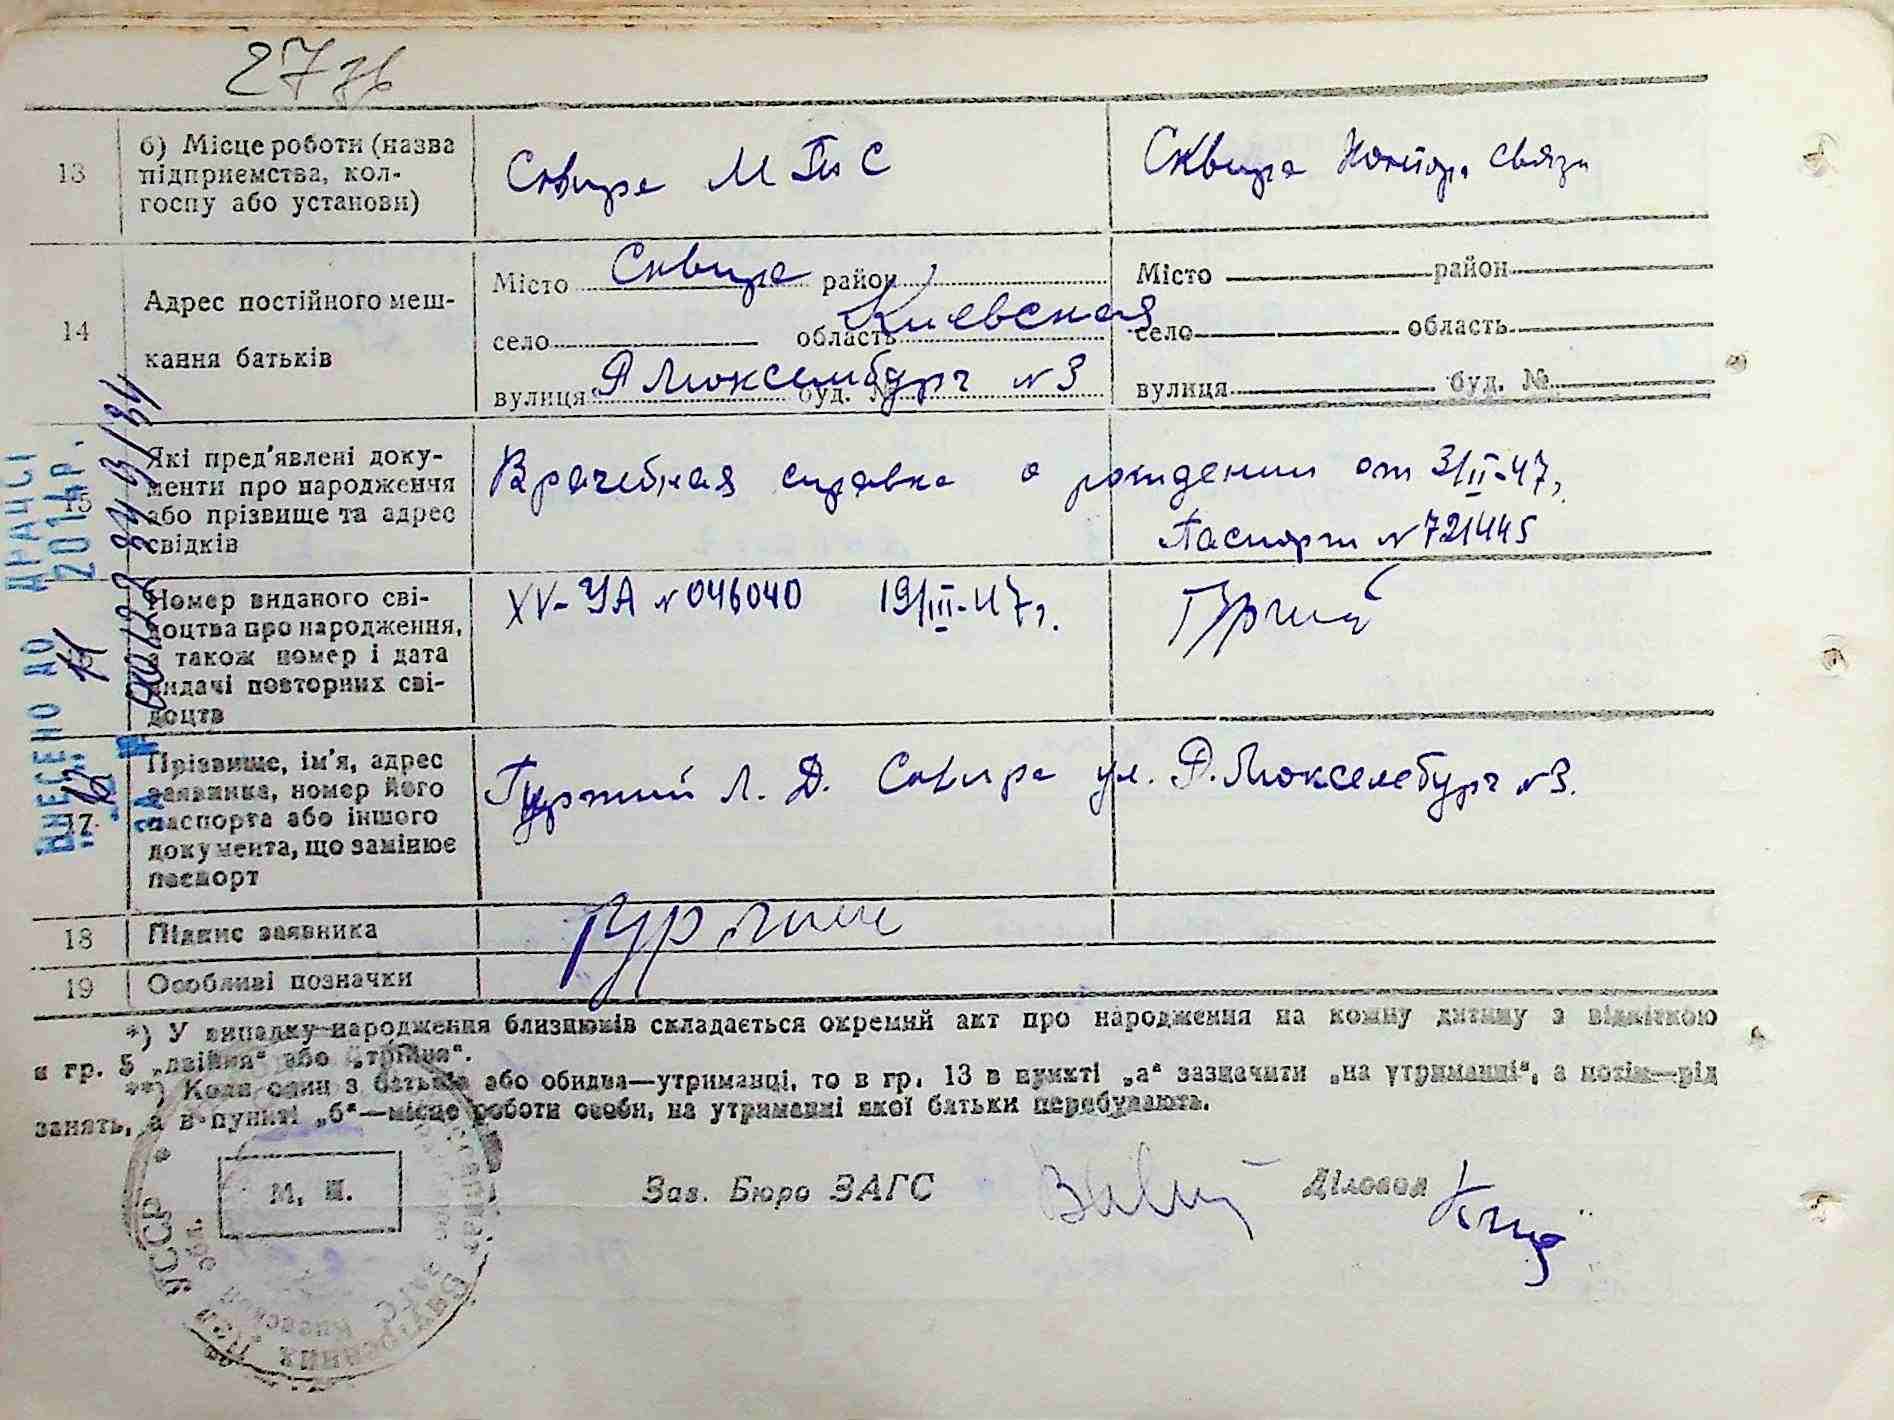 27 зв
13
б) Місце роботи (назва
підприємства, кол-
госпу або установи)
Сквира М Т С
Сквира Контора связи
14
Адрес постійного меш-
кання батьків
Місто Сквира район
село область Киевская
вулиця Р Люксембург буд. № N 3
Місто район
село область
вулиця буд. №
15
Які пред'явлені доку-
менти про народження
або прізвище та адрес
свідків
Врачебная справка о рождении от 3/II-47 г.
Паспорт N 721445
16
Номер виданого сві-
доцтва про народження,
а також номер і дата
видачі повторних сві-
доцтв
XV-УА N 046040 19/III-47 г.
17
Прізвище, ім'я, адрес
заявника, номер його
паспорта або іншого
документа, що замінює
паспорт
Гуржий Л. Д. Сквира ул. Р. Люксембург N 3.
18
Підпис заявника
19
Особливі позначки
*) У випадку народження близнюків складається окремий акт про народження на кожну дитину з відміткою
в гр. 5 „двійня“ або „трійня“.
**) Коли один з батьків або обидва—утриманці, то в гр. 13 в пункті „а“ зазначити „на утриманні“, а потім—рід
занять, а в пункті „б“—місце роботи особи, на утриманні якої батьки перебувають.
М. П.
Зав. Бюро ЗАГС
Діловод
ВНЕСЕНО ДО ДРАЦСГ
2014р.
ЗА №
УССР